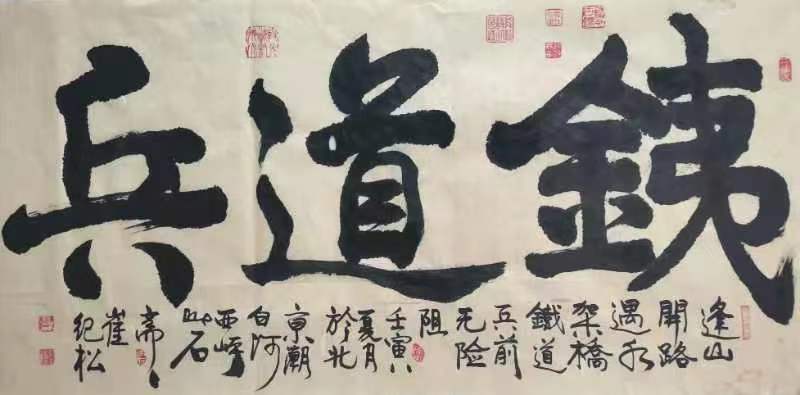 銕道兵
逢山
開路
遇水
架橋
鐵道
兵前
无险
阻
壬寅
夏月
於北
京潮
白河
西
石
斋
崔
纪松